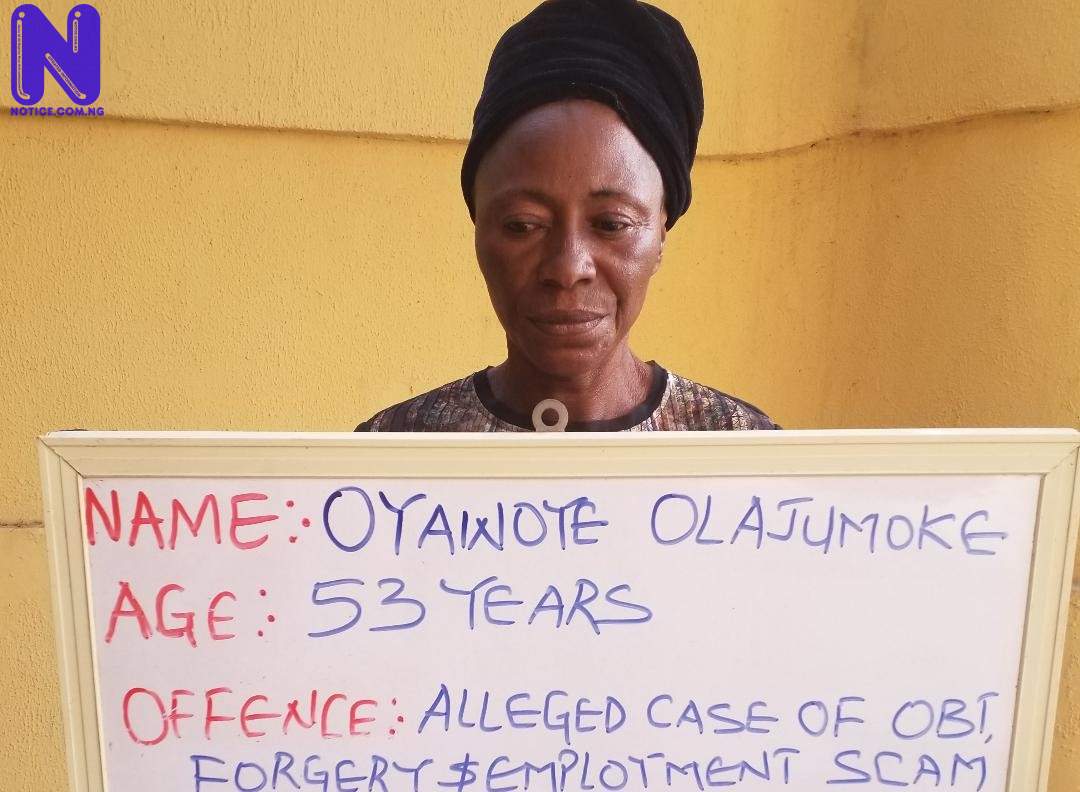 N
NOTICE.COM.NG
NAME:. OYAWOYE OLAJUMOKE
AGE: 53 YEARS
OFFENCE: ALLEGED CASE OF OBT,
FORGERY $ EMPLOYMENT SCAM